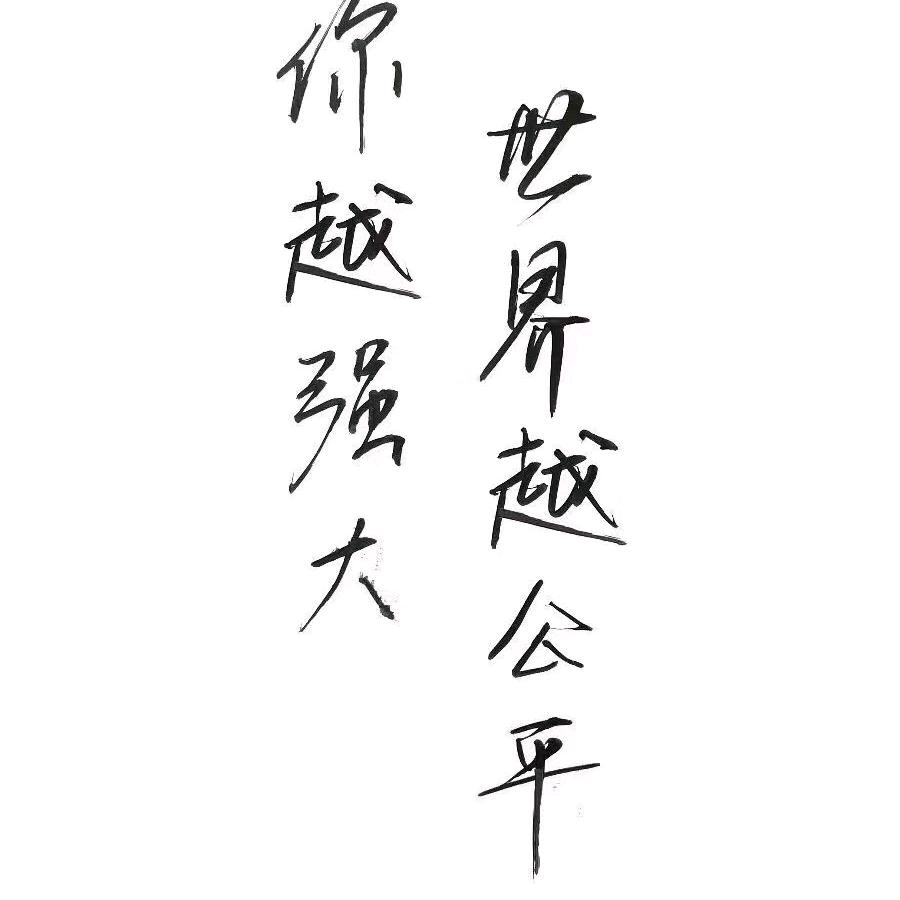 你越强大
世界越公平